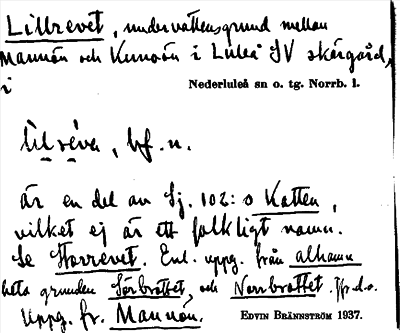 Lillrevet, undervattensgrund mellan
Mannön och Kunoön i Luleå SV skärgård,
i
Nederluleå sn o. tg. Norrb. l.
lìlréve, bf. n.
är en del av Sj. 102:s Katten,
vilket ej är ett folkligt namn.
Se Storrevet. Enl. uppg. från allmänh
heta grunden Sörbrottet och Norrbrottet. Jfr d.o.
Uppg. fr. Mannön.
EDVIN BRÄNNSTRÖM 1937.